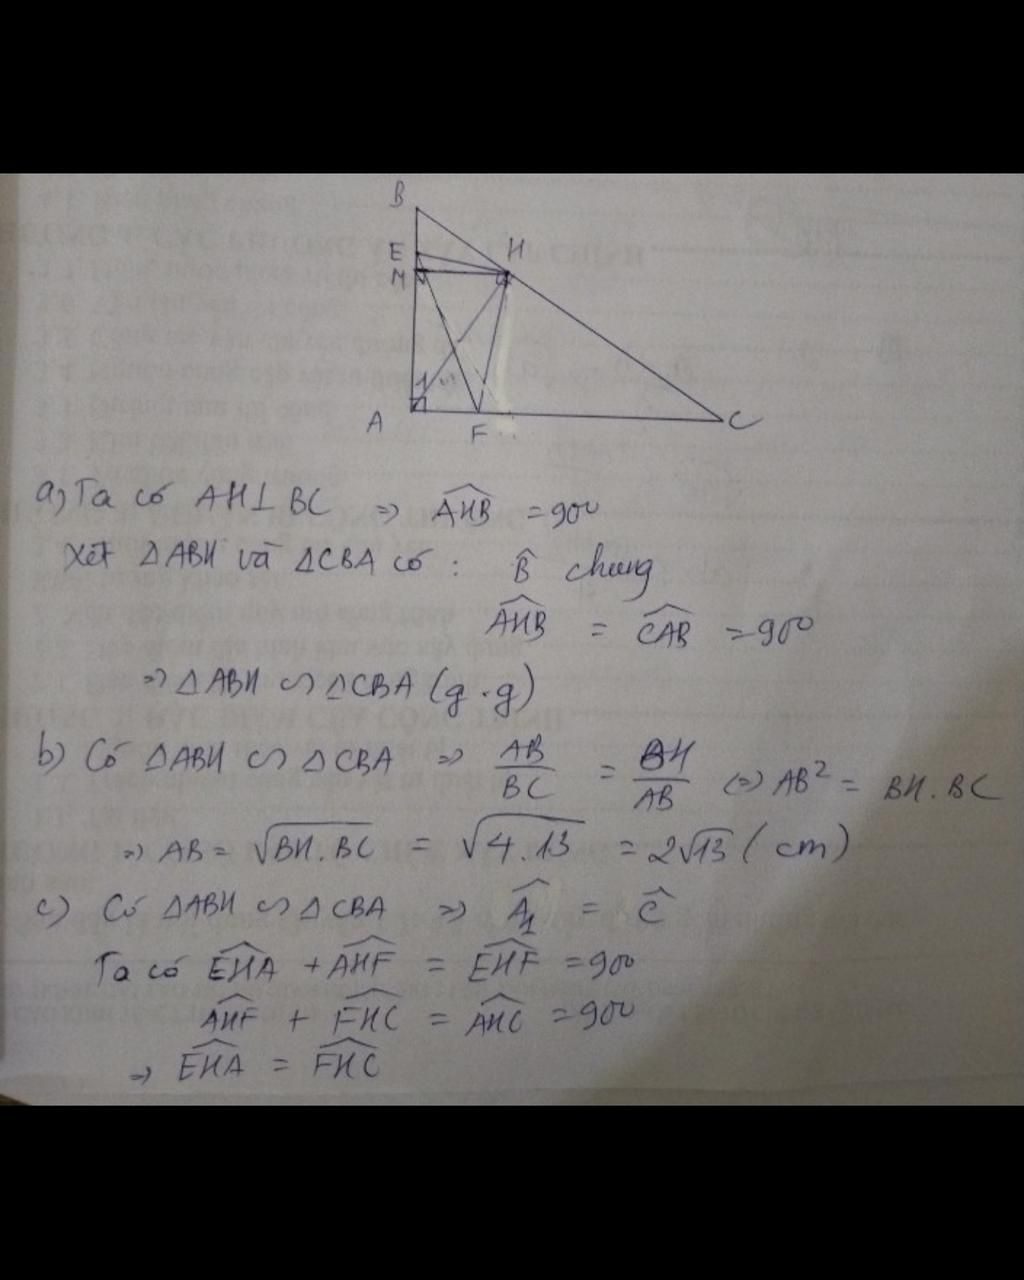 B
E
H
M
1
A
F
C
a) Ta có AH⊥BC => \widehat{AHB} = 90°
Xét ΔABH và ΔCBA có : \hat{B} chung
\widehat{AHB} = \widehat{CAB} = 90°
=> ΔABH ∽ ΔCBA (g.g)
b) Có ΔABH ∽ ΔCBA => \frac{AB}{BC} = \frac{BH}{AB} <=> AB² = BH.BC
=> AB = √(BH.BC) = √(4.13) = 2√13 (cm)
c) Có ΔABH ∽ ΔCBA => \widehat{A_1} = \hat{C}
Ta có \widehat{EHA} + \widehat{AHF} = \widehat{EHF} = 90°
\widehat{AHF} + \widehat{FHC} = \widehat{AHC} = 90°
=> \widehat{EHA} = \widehat{FHC}